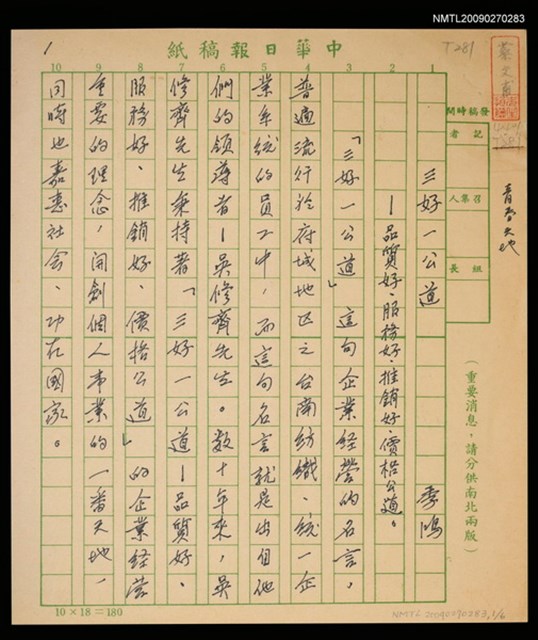 NMTL20090270283
紙稿報日華中
1
T281
蔡文甫
發稿時間
記者
召集人
組長
青春天地
(重要消息,請分供南北兩版)
10 9 8 7 6 5 4 3 2 1
三好一公道 季鴻
—品質好、服務好、推銷好、價格公道。
「三好一公道」這句企業經營的名言,
普遍流行於府城地區之台南紡織、統一企
業系統的員工中,而這句名言就是出自他
們的領導者—吳修齊先生。數十年來,吳
修齊先生秉持著「三好一公道—品質好、
服務好、推銷好、價格公道」的企業經營
重要的理念,開創個人事業的一番天地,
同時也嘉惠社會、功在國家。
10×18=180
NMTL20090270283,1/6